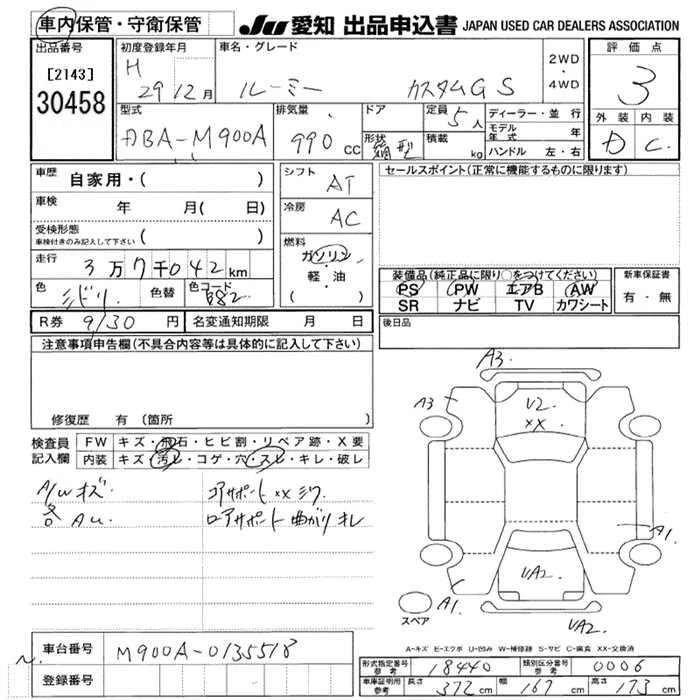 車内保管・守衛保管
JU 愛知 出品申込書 JAPAN USED CAR DEALERS ASSOCIATION
出品番号
[2143]
30458
初度登録年月
H
29 12 月
車名・グレード
ルーミー カスタムG S
2WD
・
4WD
評価点
3
外装 内装
D C
型式
DBA-M900A
排気量
990 cc
ドア
形状
箱型
定員 5 人
積載 kg
ディーラー・並行
モデル年式 年
ハンドル 左・右
車歴 自家用・( )
車検 年 月( 日)
受検形態
車検付きのみ記入して下さい ( )
走行 3万7千042km
色 ミドリ 色替 色コード B82
シフト AT
冷房 AC
燃料
ガソリン
・
軽・油
( )
セールスポイント(正常に機能するものに限ります)
装備品(純正品に限り○をつけてください)
PS PW エアB AW
SR ナビ TV カワシート
新車保証書
有・無
R券 9/30 円 名変通知期限 月 日
後日品
注意事項申告欄(不具合内容等は具体的に記入して下さい)
修復歴 有 (箇所
検査員
記入欄
FW キズ・飛石・ヒビ割・リペア跡・X要
内装 キズ・汚レ・コゲ・穴・スレ・キレ・破レ
A/Wキズ
各AU
コアサポート XX ミワ
ロアサポート 曲がり キレ
A3
A3
V2
XX
A1
VA2
A1
VA2
スペア
A-キズ E-エクボ U-凹み W-補修跡 S-サビ C-腐蝕 XX-交換済
車台番号 M900A-0135518
登録番号
形式指定番号 参考 18440
類別区分番号 参考 0006
車庫証明用 参考 長さ 372 cm 幅 167 cm 高さ 173 cm